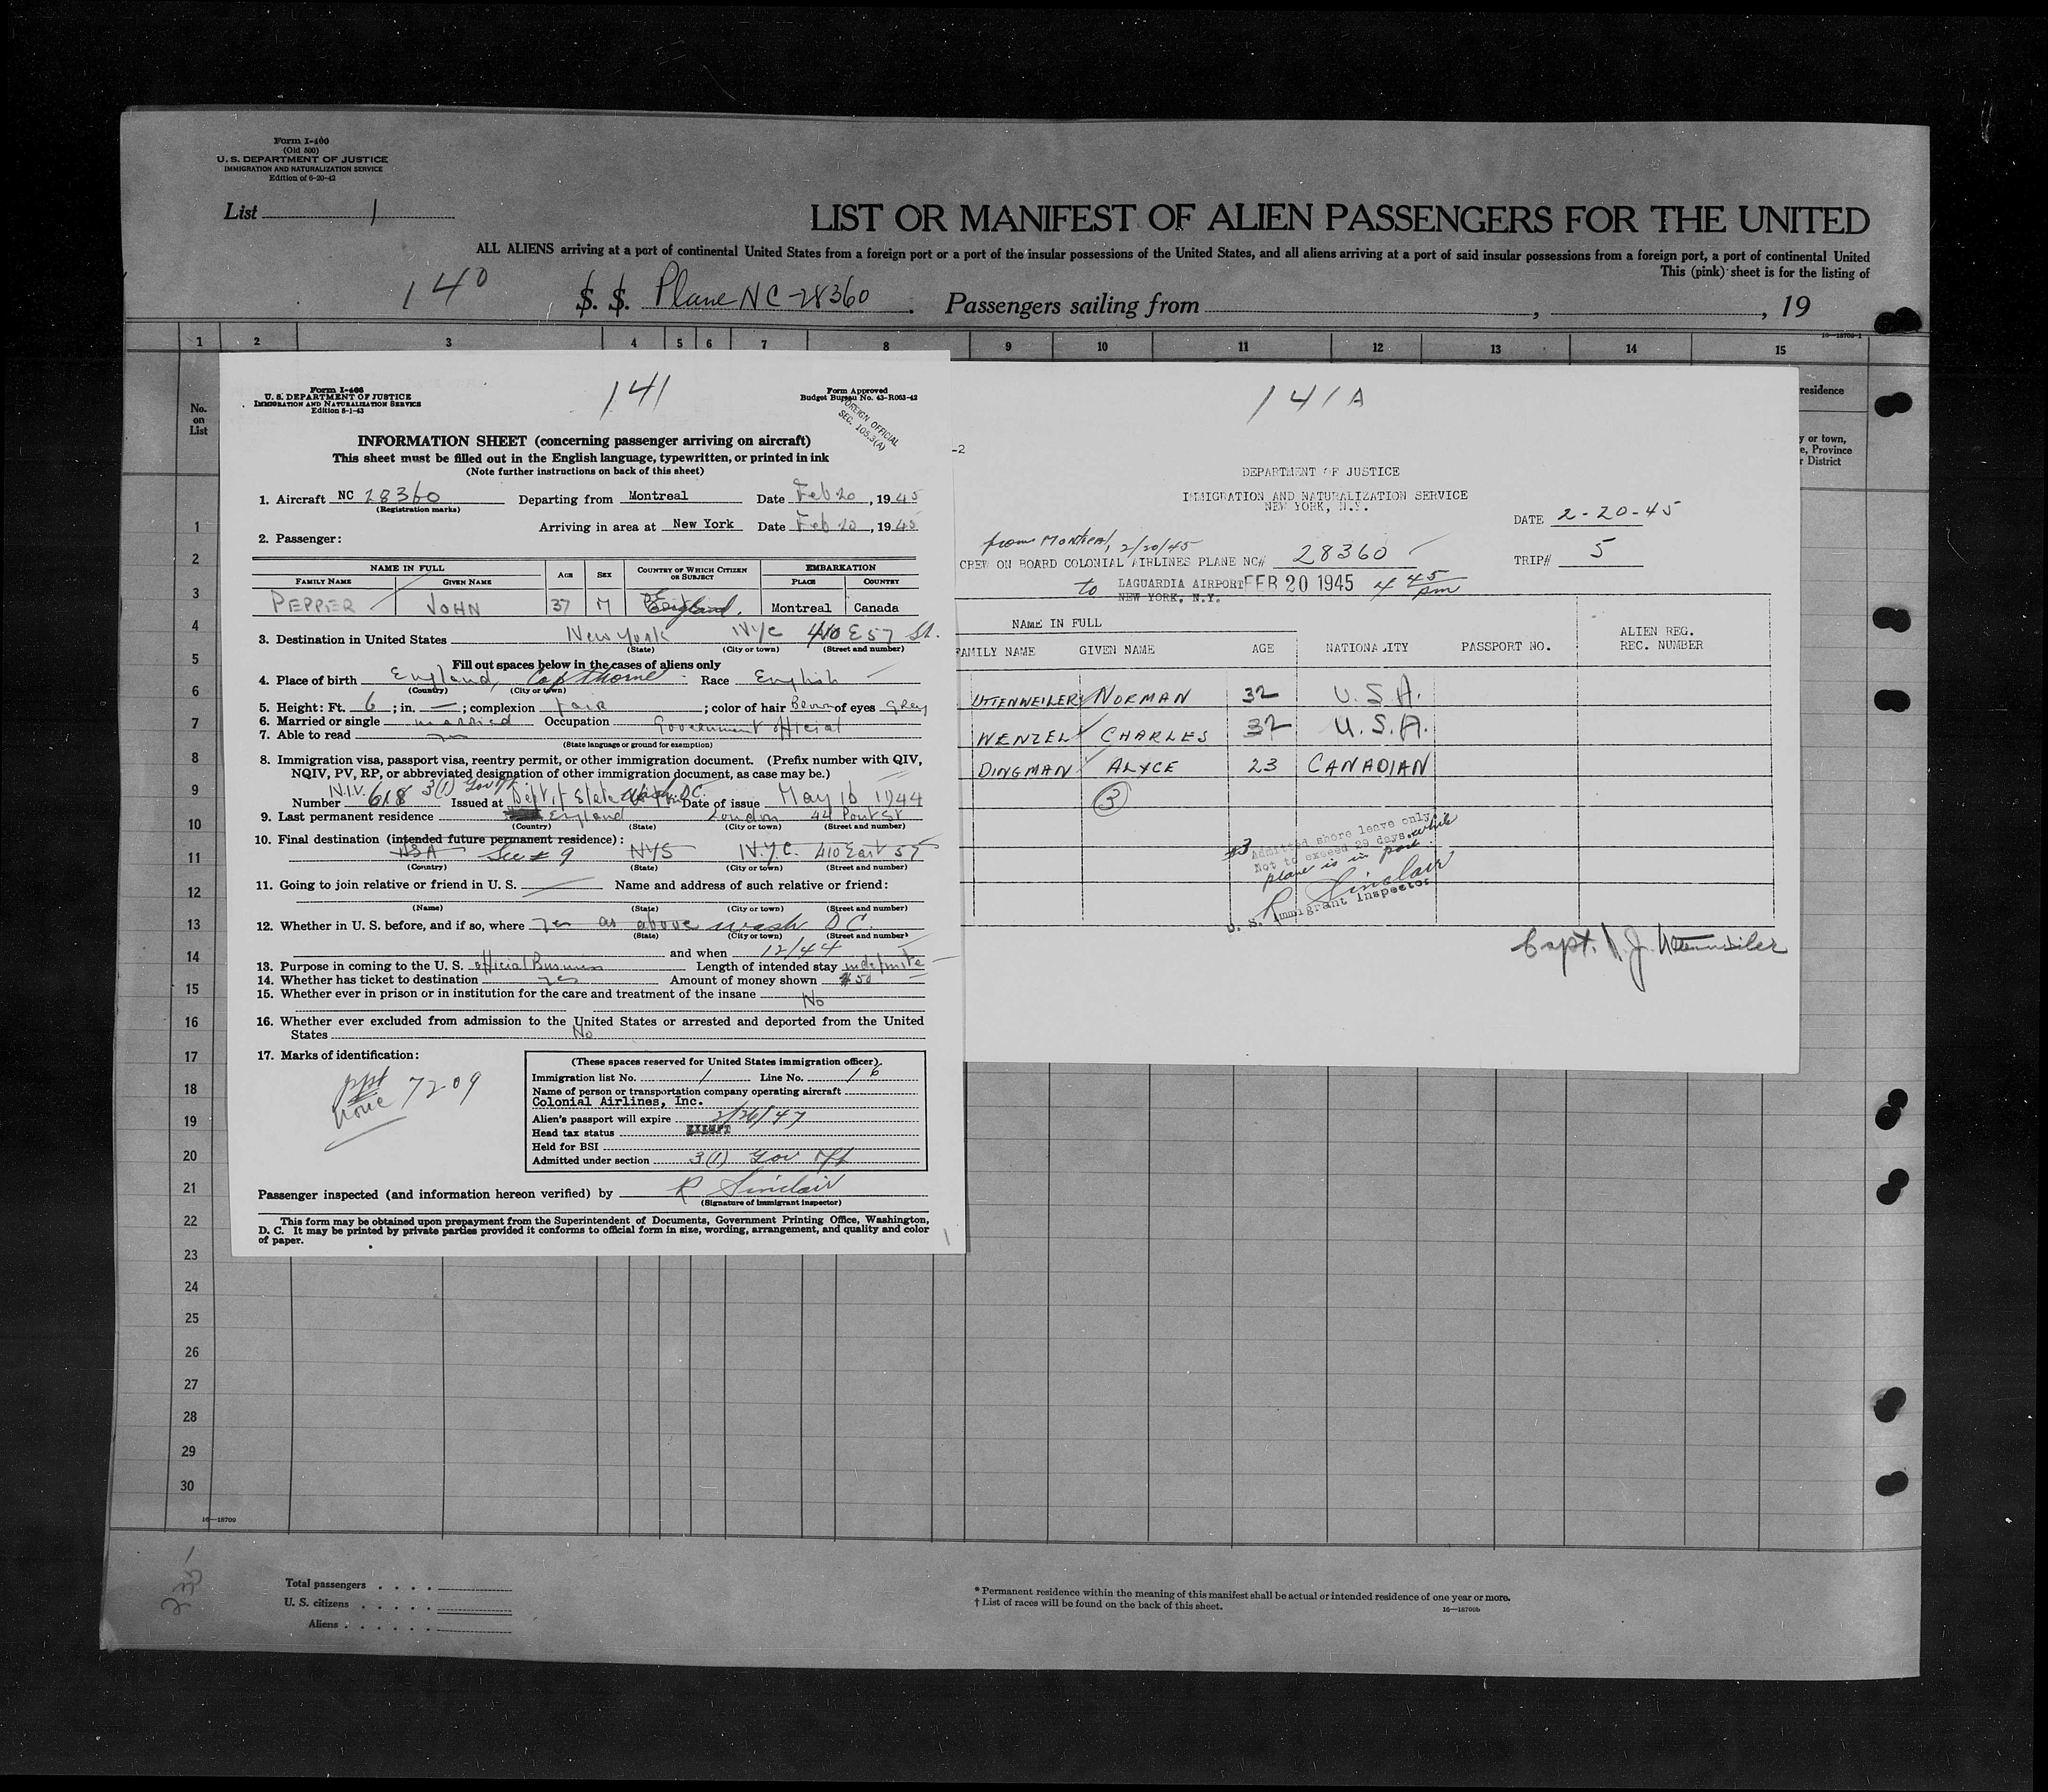 Form I-400
(Old 500)
U. S. DEPARTMENT OF JUSTICE
IMMIGRATION AND NATURALIZATION SERVICE
Edition of 6-20-42
List 1
LIST OR MANIFEST OF ALIEN PASSENGERS FOR THE UNITED
ALL ALIENS arriving at a port of continental United States from a foreign port or a port of the insular possessions of the United States, and all aliens arriving at a port of said insular possessions from a foreign port, a port of continental United
This (pink) sheet is for the listing of
140 S. S. Plane NC-28360. Passengers sailing from , , 19
16—18709-1
1 2 3 4 5 6 7 8 9 10 11 12 13 14 15
No.
on
List
residence
y or town,
e, Province
r District
1
2
3
4
5
6
7
8
9
10
11
12
13
14
15
16
17
18
19
20
21
22
23
24
25
26
27
28
29
30
16—18709
Total passengers . . . .
U. S. citizens . . . . .
Aliens . . . . . .
* Permanent residence within the meaning of this manifest shall be actual or intended residence of one year or more.
† List of races will be found on the back of this sheet.
16—18709b
Form I-466
U. S. DEPARTMENT OF JUSTICE
IMMIGRATION AND NATURALIZATION SERVICE
Edition 8-1-43
141
Form Approved
Budget Bureau No. 43-R063-42
FOREIGN OFFICIAL
SEC. 105.3(A)
INFORMATION SHEET (concerning passenger arriving on aircraft)
This sheet must be filled out in the English language, typewritten, or printed in ink
(Note further instructions on back of this sheet)
1. Aircraft NC 28360 Departing from Montreal Date Feb 20, 1945
(Registration marks)
Arriving in area at New York Date Feb 20, 1945
2. Passenger:
NAME IN FULL AGE SEX COUNTRY OF WHICH CITIZEN OR SUBJECT EMBARKATION
FAMILY NAME GIVEN NAME PLACE COUNTRY
PEPPER JOHN 37 M England. Montreal Canada
3. Destination in United States New York NYC 410 E 57 St.
(State) (City or town) (Street and number)
Fill out spaces below in the cases of aliens only
4. Place of birth England, Copthorne Race English
(Country) (City or town)
5. Height: Ft. 6; in. —; complexion fair; color of hair Brown of eyes Grey
6. Married or single married Occupation Government official
7. Able to read yes
(State language or ground for exemption)
8. Immigration visa, passport visa, reentry permit, or other immigration document. (Prefix number with QIV,
NQIV, PV, RP, or abbreviated designation of other immigration document, as case may be.)
N.I.V. 3(1) Gov't
Number 618 Issued at Dept of State Wash D.C. Date of issue May 16 1944
9. Last permanent residence England London 44 Pont St
(Country) (State) (City or town) (Street and number)
10. Final destination (intended future permanent residence):
USA See # 9 NYS N.Y.C. 410 East 57
(Country) (State) (City or town) (Street and number)
11. Going to join relative or friend in U. S. Name and address of such relative or friend:
(Name) (State) (City or town) (Street and number)
12. Whether in U. S. before, and if so, where yes as above wash DC.
(State) (City or town) (Street and number)
and when 12/44
13. Purpose in coming to the U. S. official Business Length of intended stay indefinite
14. Whether has ticket to destination yes Amount of money shown $50
15. Whether ever in prison or in institution for the care and treatment of the insane No
16. Whether ever excluded from admission to the United States or arrested and deported from the United
States No
17. Marks of identification:
ppt 7209
none
(These spaces reserved for United States immigration officer)
Immigration list No. 1 Line No. 1 6
Name of person or transportation company operating aircraft
Colonial Airlines, Inc.
Alien's passport will expire 2/26/47
Head tax status EXEMPT
Held for BSI
Admitted under section 3(1) Gov off
Passenger inspected (and information hereon verified) by R Sinclair
(Signature of immigrant inspector)
This form may be obtained upon prepayment from the Superintendent of Documents, Government Printing Office, Washington,
D. C. It may be printed by private parties provided it conforms to official form in size, wording, arrangement, and quality and color
of paper.
141A
-2
DEPARTMENT OF JUSTICE
IMMIGRATION AND NATURALIZATION SERVICE
NEW YORK, N.Y.
DATE 2-20-45
from Montreal, 2/20/45
CREW ON BOARD COLONIAL AIRLINES PLANE NC# 28360 TRIP# 5
to LAGUARDIA AIRPORT FEB 20 1945 4 45 pm
NEW YORK, N.Y.
NAME IN FULL
FAMILY NAME GIVEN NAME AGE NATIONALITY PASSPORT NO. ALIEN REG. REC. NUMBER
UTTENWEILER NORMAN 32 U.S.A.
WENZEL CHARLES 32 U.S.A.
DINGMAN ALYCE 23 CANADIAN
3
#3 Admitted shore leave only
Not to exceed 29 days while
plane is in port.
R Sinclair
U. S. Immigrant Inspector
Capt. N. J. Uttenweiler